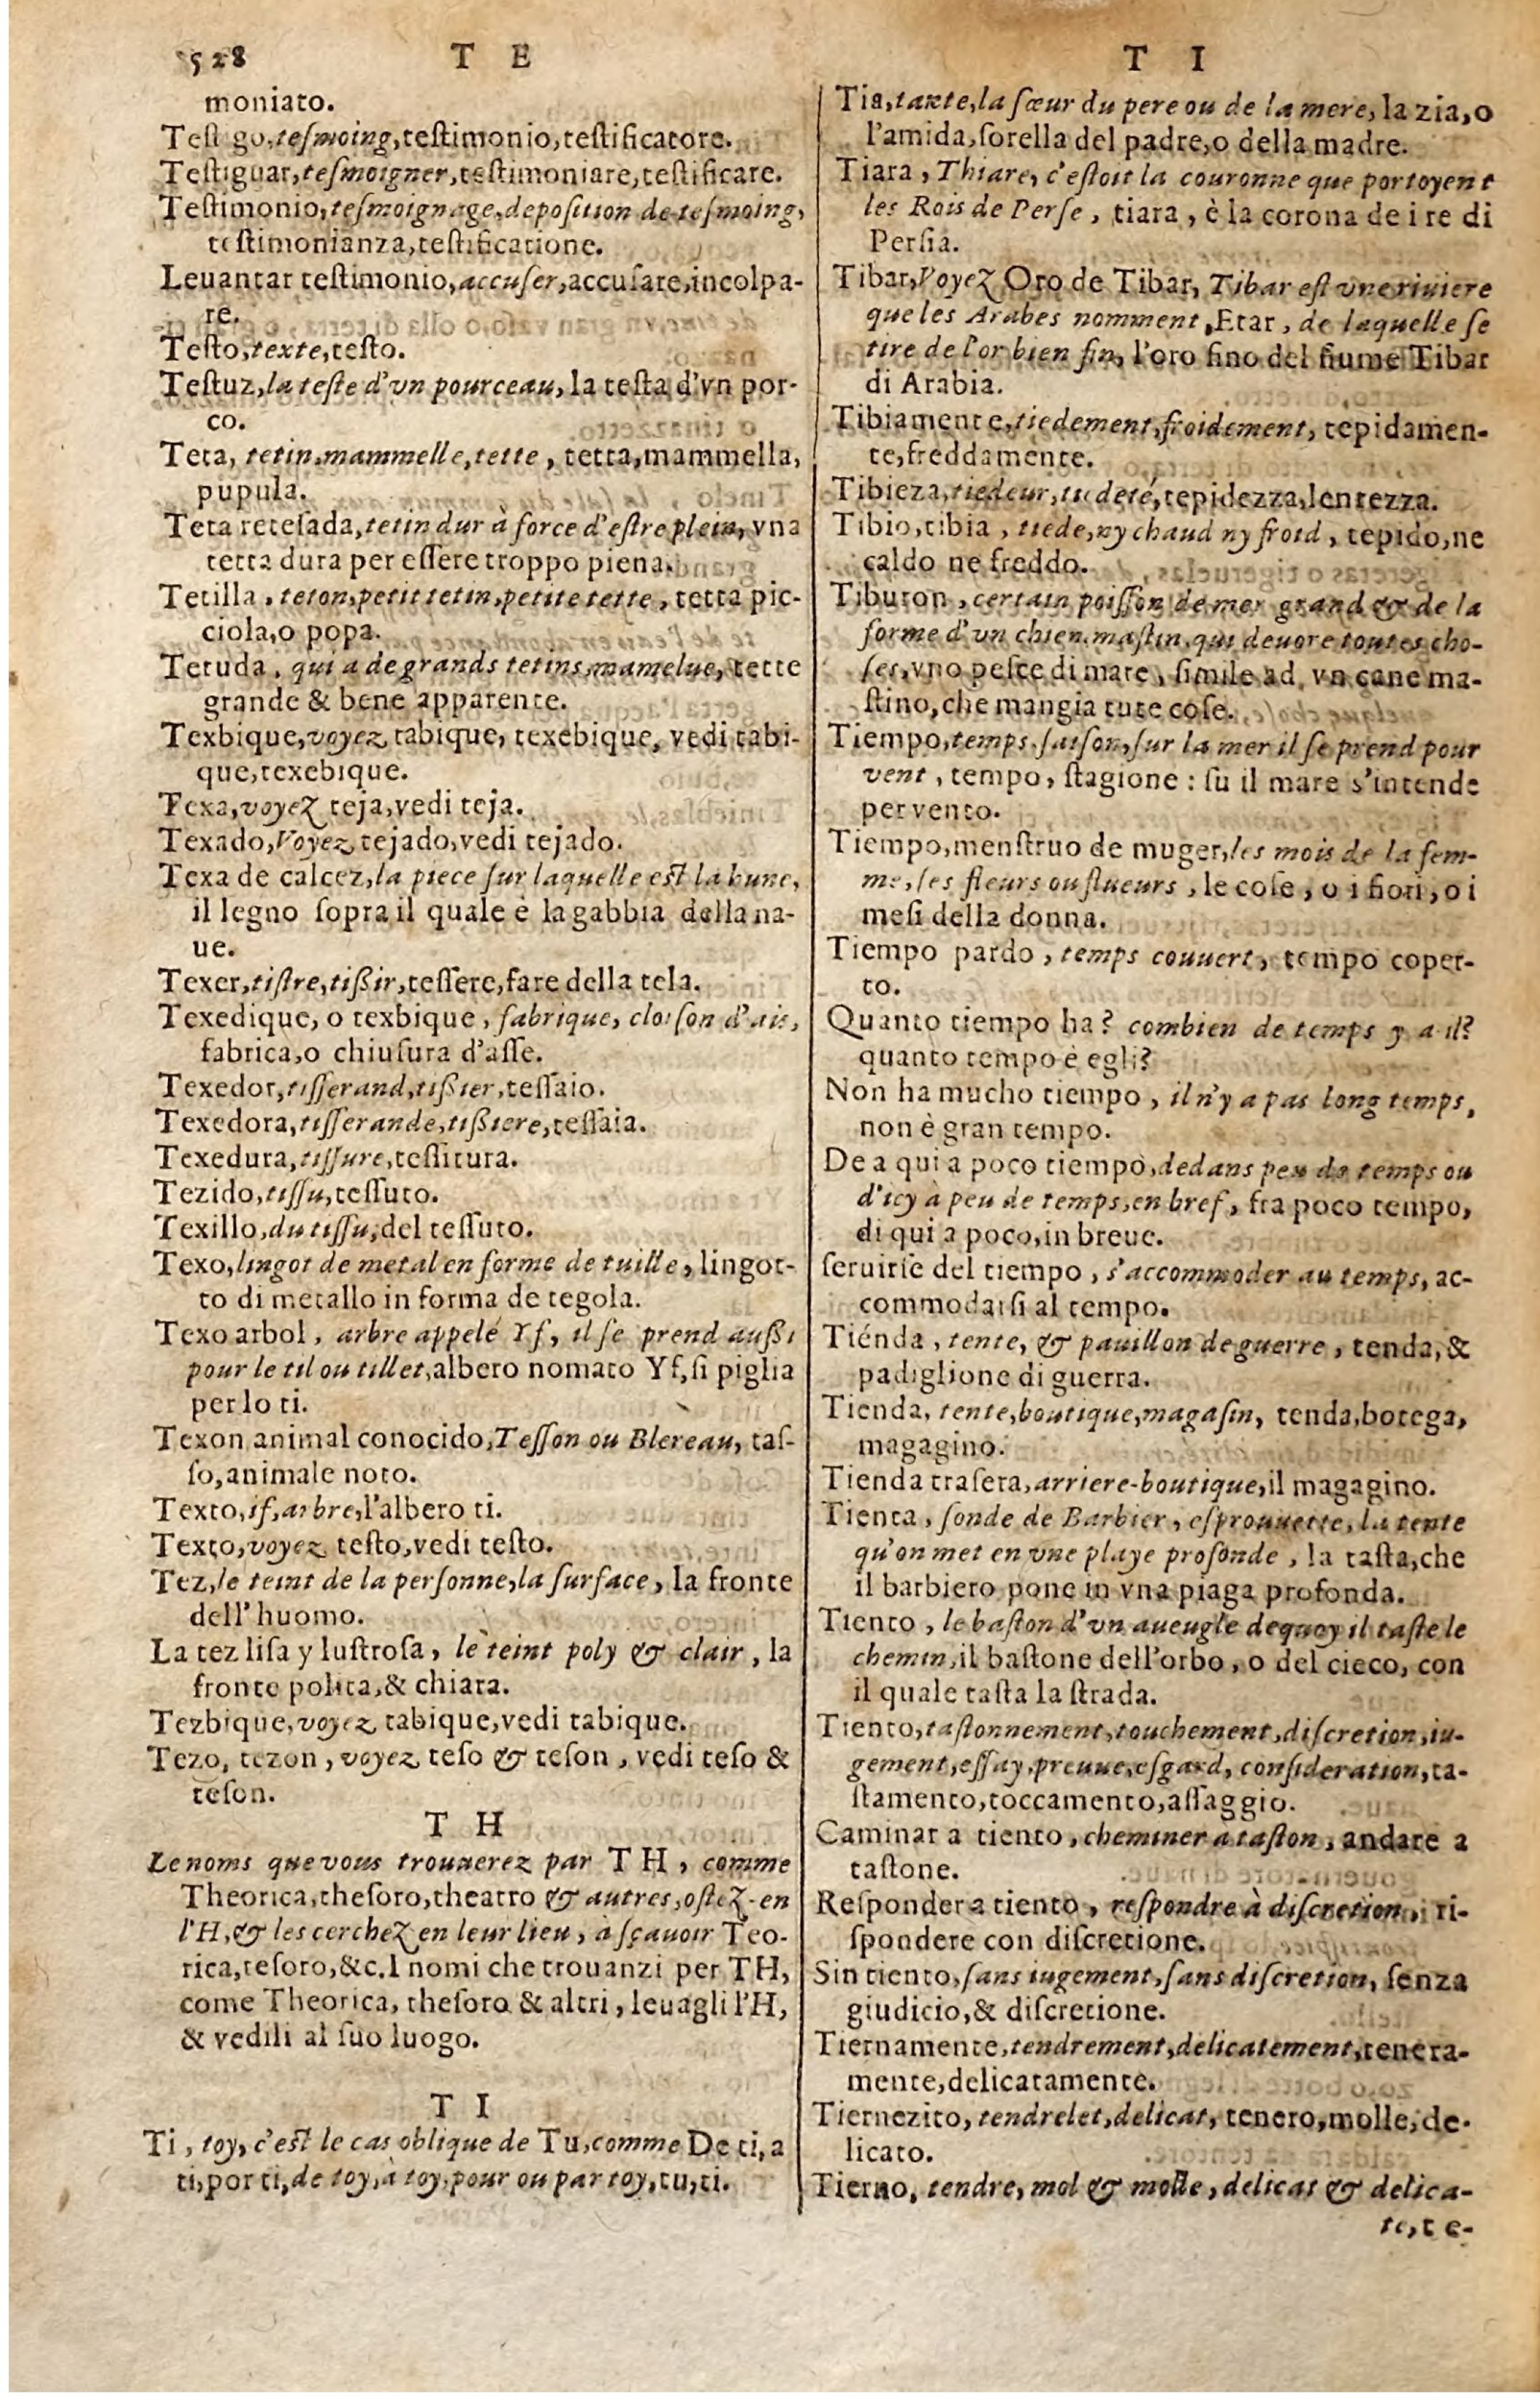 528 T E
moniato.
Testigo, tesmoing, testimonio, testificatore.
Testiguar, tesmoigner, testimoniare, testificare.
Testimonio, tesmoignage, deposition de tesmoing,
testimonianza, testificatione.
Leuantar testimonio, accuser, accusare, incolpa-
re.
Testo, texte, testo.
Testuz, la teste d'vn pourceau, la testa d'vn por-
co.
Teta, tetin, mammelle, tette, tetta, mammella,
pupula.
Teta retesada, tetin dur à force d'estre plein, vna
tetta dura per essere troppo piena.
Tetilla, teton, petit tetin, petite tette, tetta pic-
ciola, o popa.
Tetuda, qui a de grands tetins, mamelue, tette
grande & bene apparente.
Texbique, voyez tabique, texebique, vedi tabi-
que, texebique.
Texa, voyez teja, vedi teja.
Texado, Voyez tejado, vedi tejado.
Texa de calcez, la piece sur laquelle est la hune,
il legno sopra il quale è la gabbia della na-
ue.
Texer, tistre, tißir, tessere, fare della tela.
Texedique, o texbique, fabrique, cloison d'ais,
fabrica, o chiusura d'asse.
Texedor, tisserand, tißier, tessaio.
Texedora, tisserande, tißiere, tessaia.
Texedura, tissure, tessitura.
Tezido, tissu, tessuto.
Texillo, du tissu, del tessuto.
Texo, lingot de metal en forme de tuille, lingot-
to di metallo in forma de tegola.
Texo arbol, arbre appelé Yf, il se prend außi
pour le til ou tillet, albero nomato Yf, si piglia
per lo ti.
Texon animal conocido, Tesson ou Blereau, tas-
so, animale noto.
Texto, if, arbre, l'albero ti.
Texto, voyez testo, vedi testo.
Tez, le teint de la personne, la surface, la fronte
dell' huomo.
La tez lisa y lustrosa, le teint poly & clair, la
fronte polita, & chiara.
Tezbique, voyez tabique, vedi tabique.
Tezo, tezon, voyez teso & teson, vedi teso &
teson.
T H
Le noms que vous trouuerez par T H, comme
Theorica, thesoro, theatro & autres, ostez-en
l'H, & les cerchez en leur lieu, a sçauoir Teo-
rica, tesoro, &c. I nomi che trouanzi per TH,
come Theorica, thesoro & altri, leuagli l'H,
& vedili al suo luogo.
T I
Ti, toy, c'est le cas oblique de Tu, comme De ti, a
ti, por ti, de toy, à toy, pour ou par toy, tu, ti.
T I
Tia, tante, la sœur du pere ou de la mere, la zia, o
l'amida, sorella del padre, o della madre.
Tiara, Thiare, c'estoit la couronne que portoyent
les Rois de Perse, tiara, è la corona de i re di
Persia.
Tibar, Voyez Oro de Tibar, Tibar est vne riuiere
que les Arabes nomment, Etar, de laquelle se
tire de l'or bien fin, l'oro fino del fiume Tibar
di Arabia.
Tibiamente, tiedement, froidement, tepidamen-
te, freddamente.
Tibieza, tiedeur, tiedeté, tepidezza, lentezza.
Tibio, tibia, tiede, ny chaud ny froid, tepido, ne
caldo ne freddo.
Tiburon, certain poisson de mer grand & de la
forme d'vn chien mastin, qui deuore toutes cho-
ses, vno pesce di mare, simile ad vn cane ma-
stino, che mangia tute cose.
Tiempo, temps, saison, sur la mer il se prend pour
vent, tempo, stagione: su il mare s'intende
per vento.
Tiempo, menstruo de muger, les mois de la fem-
me, ses fleurs ou flueurs, le cose, o i fiori, o i
mesi della donna.
Tiempo pardo, temps couuert, tempo coper-
to.
Quanto tiempo ha? combien de temps y a-il?
quanto tempo è egli?
Non ha mucho tiempo, il n'y a pas long temps,
non è gran tempo.
De a qui a poco tiempo, dedans peu de temps ou
d'icy à peu de temps, en bref, fra poco tempo,
di qui a poco, in breue.
seruirse del tiempo, s'accommoder au temps, ac-
commodarsi al tempo.
Tiénda, tente, & pauillon de guerre, tenda, &
padiglione di guerra.
Tienda, tente, boutique, magasin, tenda, botega,
magagino.
Tienda trasera, arriere-boutique, il magagino.
Tienta, sonde de Barbier, esprouuette, la tente
qu'on met en vne playe profonde, la tasta, che
il barbiero pone in vna piaga profonda.
Tiento, le baston d'vn aueugle dequoy il taste le
chemin, il bastone dell'orbo, o del cieco, con
il quale tasta la strada.
Tiento, tastonnement, touchement, discretion, iu-
gement, essay, preuue, esgard, consideration, ta-
stamento, toccamento, assaggio.
Caminar a tiento, cheminer a taston, andare a
tastone.
Responder a tiento, respondre à discretion, ri-
spondere con discretione.
Sin tiento, sans iugement, sans discretion, senza
giudicio, & discretione.
Tiernamente, tendrement, delicatement, tenera-
mente, delicatamente.
Tiernezito, tendrelet, delicat, tenero, molle, de-
licato.
Tierno, tendre, mol & molle, delicat & delica-
te, te-